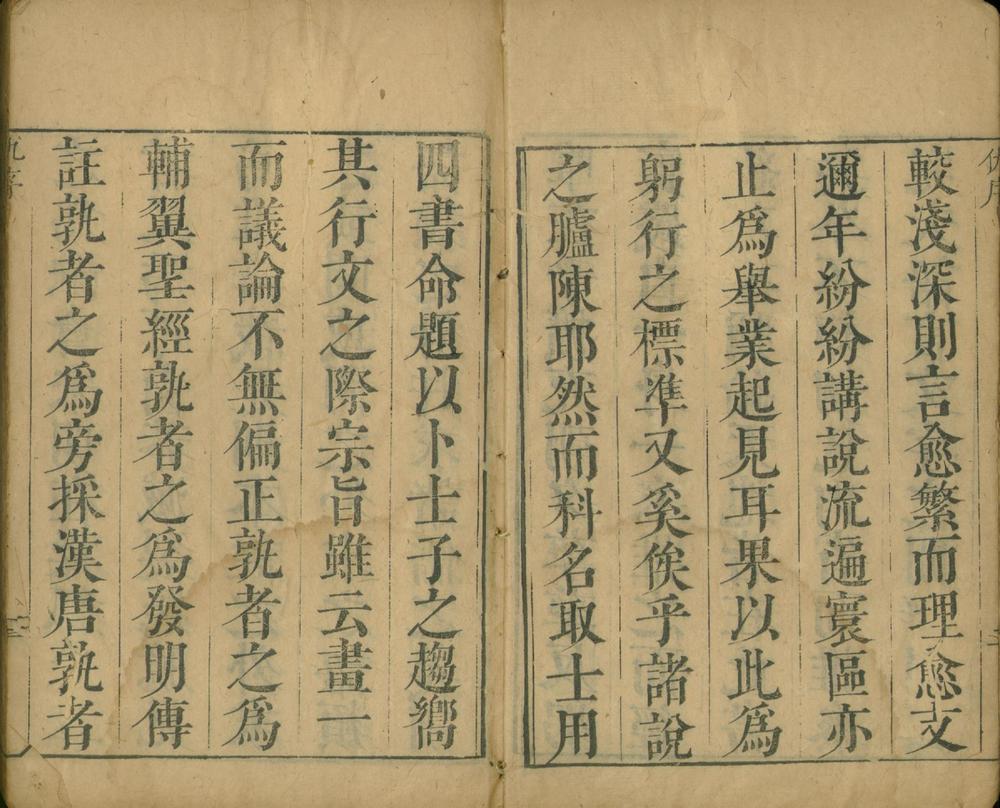 較淺深則言愈繁而理愈支
邇年紛紛講說流遍寰區亦
止爲舉業起見耳果以此爲
躬行之標準又奚俟乎諸說
之臚陳耶然而科名取士用
四書命題以卜士子之趨嚮
其行文之際宗旨雖云畫一
而議論不無偏正孰者之爲
輔翼聖經孰者之爲發明傳
註孰者之爲旁採漢唐孰者